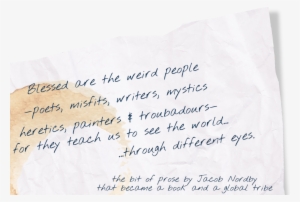 Blessed are the weird people
—poets, misfits, writers, mystics
heretics, painters & troubadours—
for they teach us to see the world...
...through different eyes.
the bit of prose by Jacob Nordby
that became a book and a global tribe